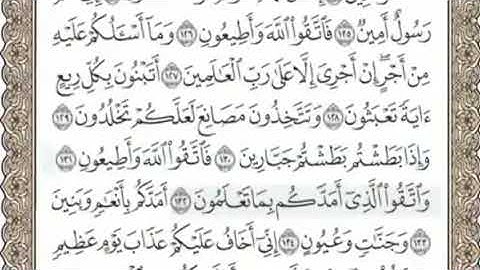 رَسُولٌ أَمِينٌ ١٢٥ فَٱتَّقُوا۟ ٱللَّهَ وَأَطِيعُونِ ١٢٦ وَمَآ أَسْـَٔلُكُمْ عَلَيْهِ
مِنْ أَجْرٍ إِنْ أَجْرِىَ إِلَّا عَلَىٰ رَبِّ ٱلْعَـٰلَمِينَ ١٢٧ أَتَبْنُونَ بِكُلِّ رِيعٍ
ءَايَةً تَعْبَثُونَ ١٢٨ وَتَتَّخِذُونَ مَصَانِعَ لَعَلَّكُمْ تَخْلُدُونَ ١٢٩
وَإِذَا بَطَشْتُم بَطَشْتُمْ جَبَّارِينَ ١٣٠ فَٱتَّقُوا۟ ٱللَّهَ وَأَطِيعُونِ ١٣١
وَٱتَّقُوا۟ ٱلَّذِىٓ أَمَدَّكُم بِمَا تَعْلَمُونَ ١٣٢ أَمَدَّكُم بِأَنْعَـٰمٍ وَبَنِينَ
١٣٣ وَجَنَّـٰتٍ وَعُيُونٍ ١٣٤ إِنِّىٓ أَخَافُ عَلَيْكُمْ عَذَابَ يَوْمٍ عَظِيمٍ